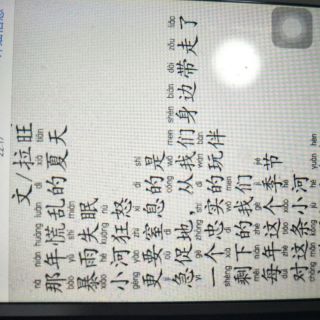 文/拉旺
那年慌乱的夏天
暴雨失眠
小河狂怒
更要窒息的是
急促地，从我们身边带走了
一个忠实的玩伴
剩下的我们
每年这个季节
对这条小河